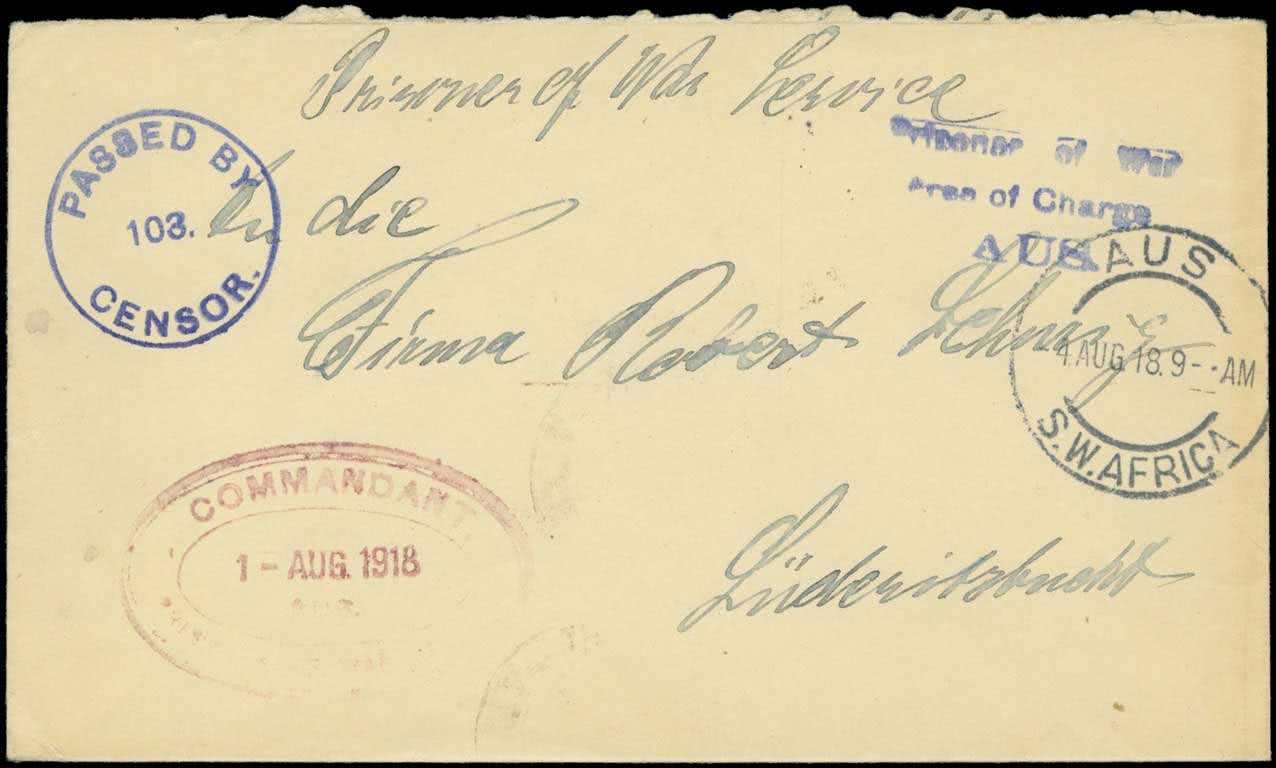 Prisoner of War Service
PASSED BY
103.
CENSOR.
Prisoner of War
Area of Charge
AUS
An die
Firma Robert
AUS
1 AUG 18. 9-- AM
S.W. AFRICA
COMMANDANT
1 - AUG. 1918
AUS.
Lüderitzbucht